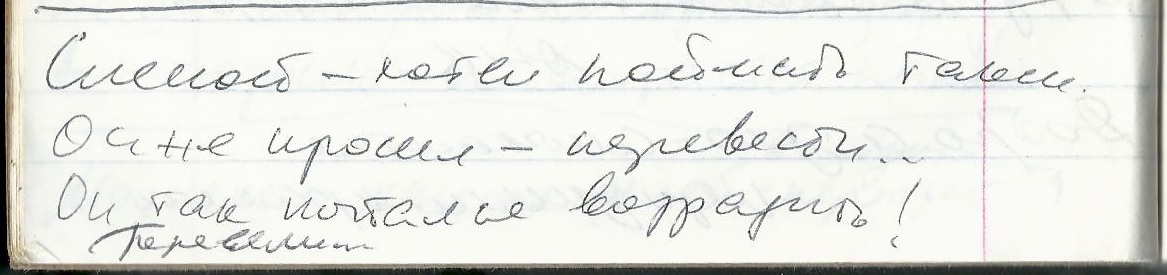 Слепой – хотел поймать такси.
Он не просил – перевести...
Он так пытался возразить!
Перевели...